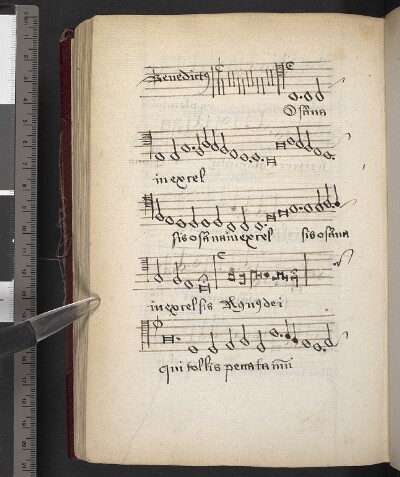 Benedictꝰ
Osãna
in excel
sis osãna in excel sis osãna
in excelsis Agnꝰ dei
qui tollis peccata mũi